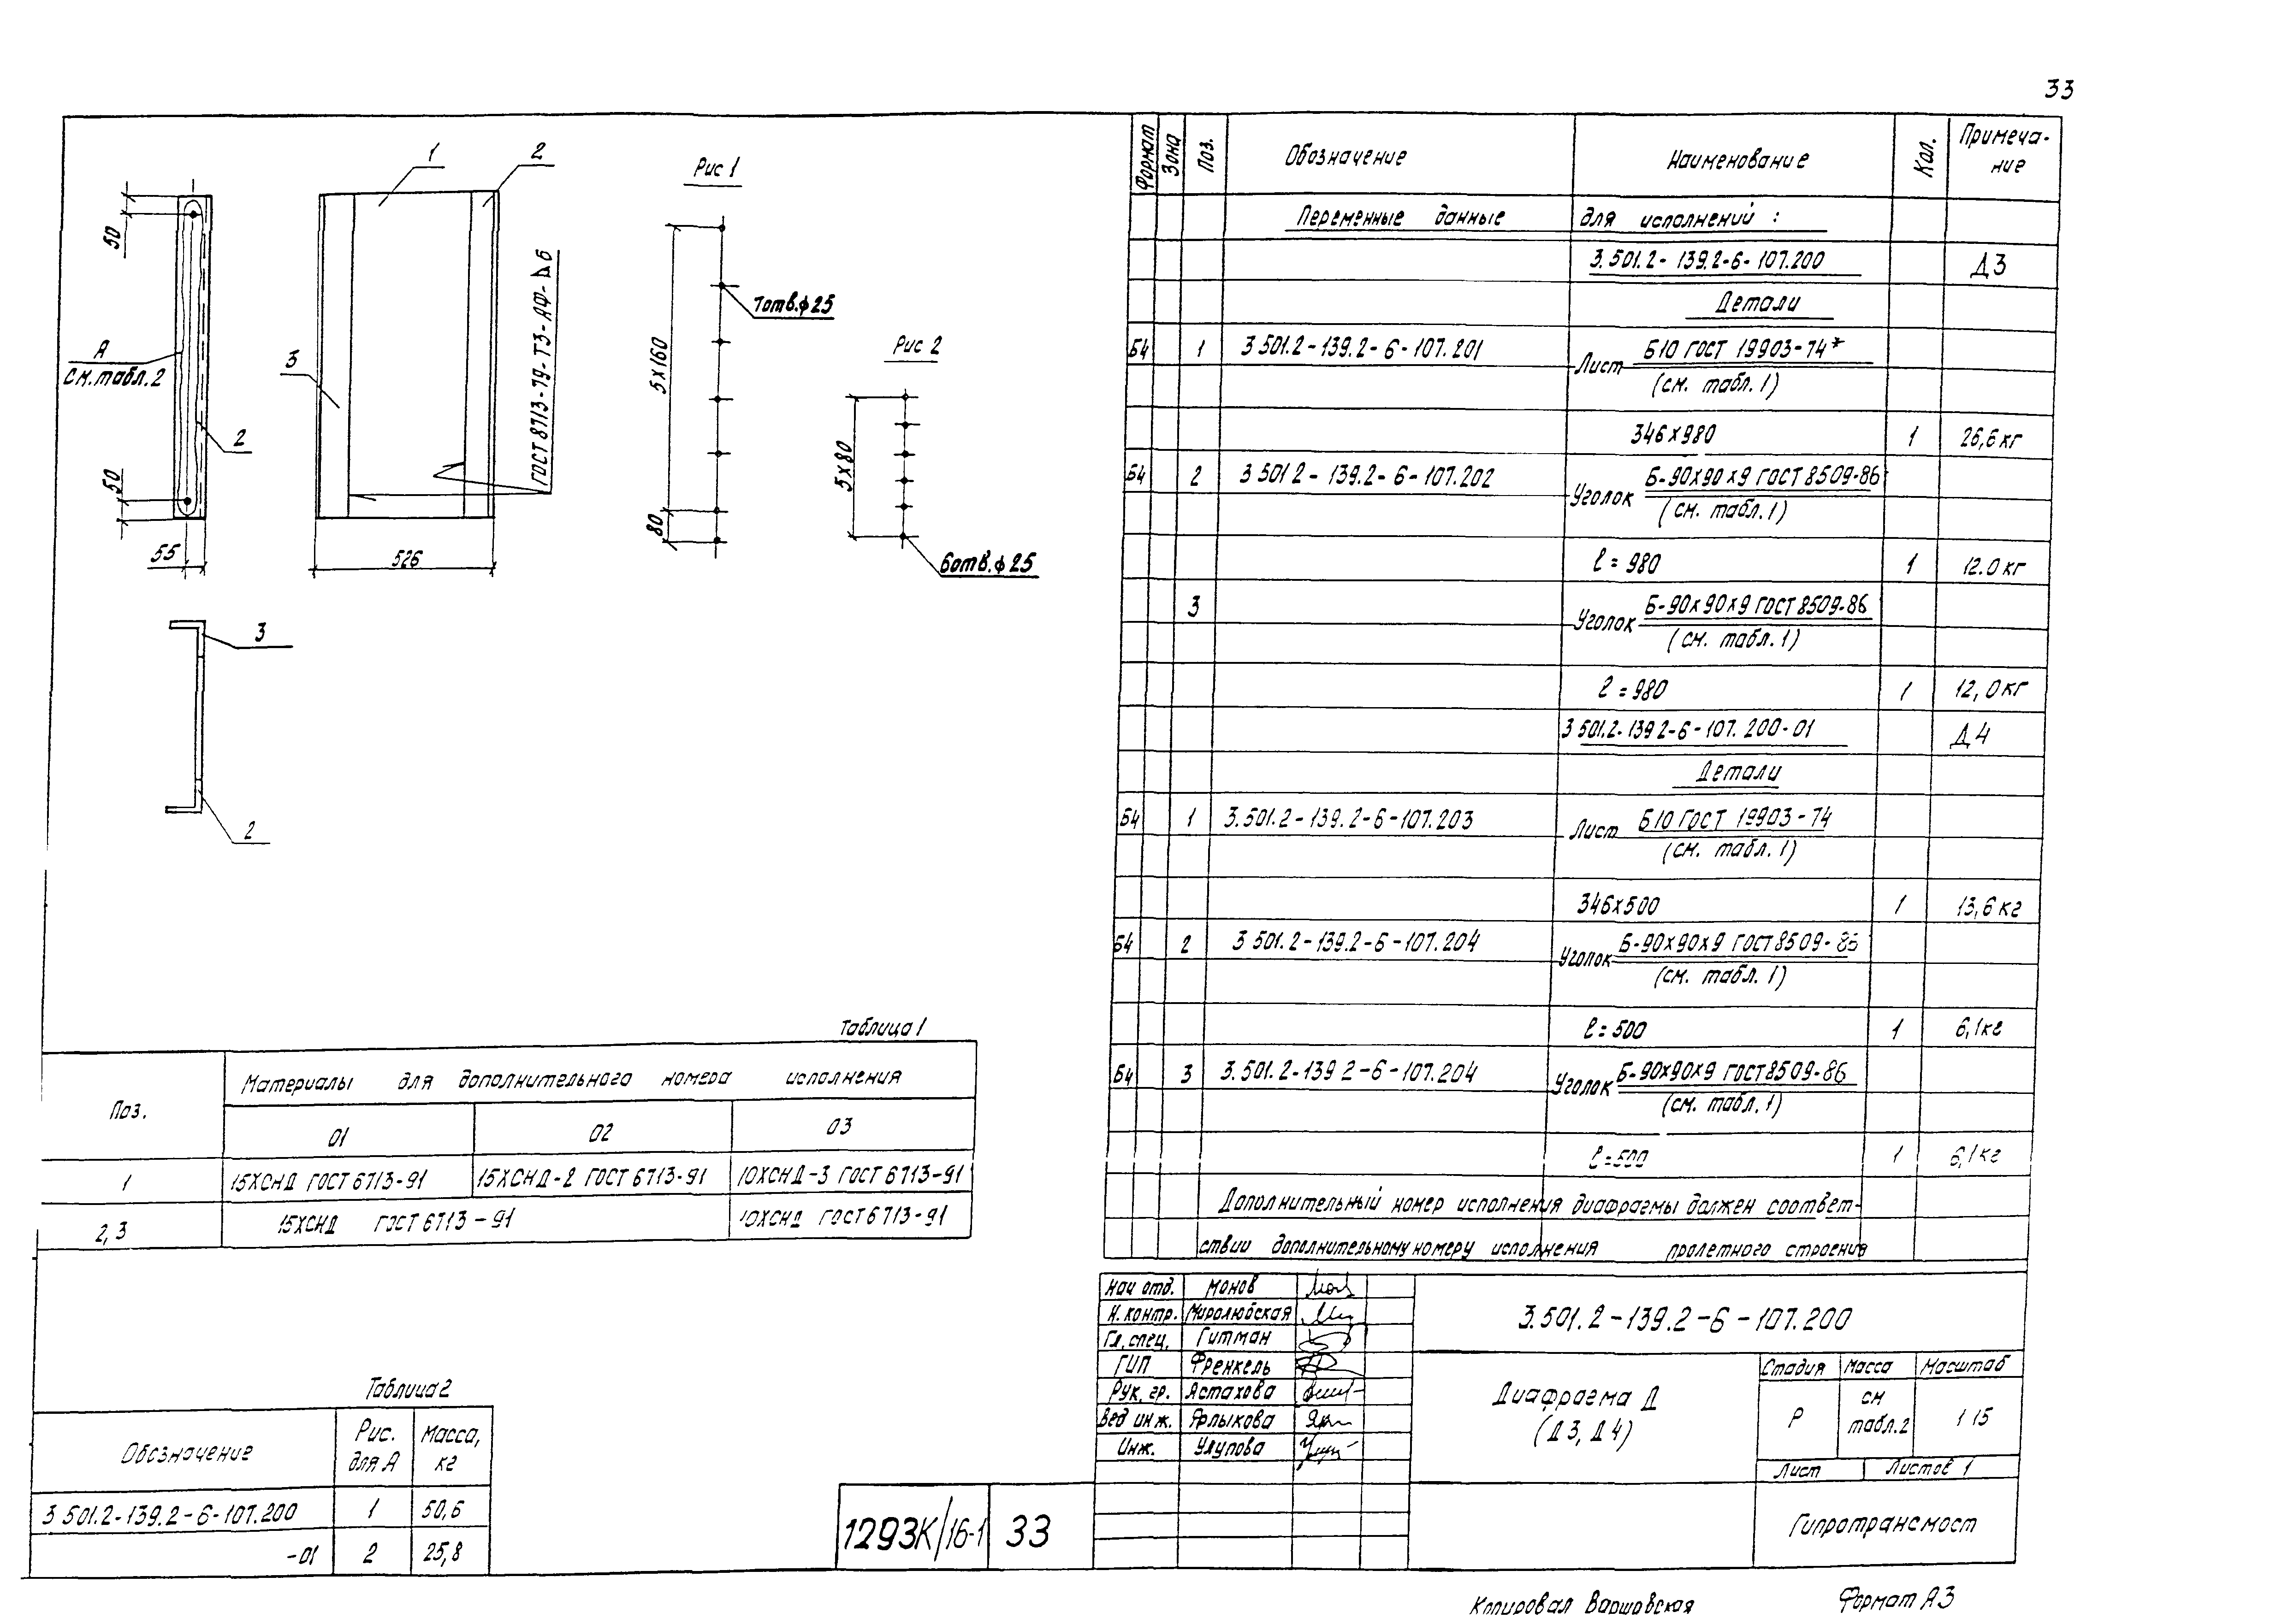 33
50
50
55
А
см. табл. 2
2
1
2
3
526
ГОСТ 8713-79-Т3-АФ-⊿6
3
2
Рис 1
5х160
80
7отв.ф25
Рис 2
5х80
6отв.ф25
Таблица 1
Поз.
Материалы для дополнительного номера исполнения
01 02 03
1 15ХСНД ГОСТ 6713-91 15ХСНД-2 ГОСТ 6713-91 10ХСНД-3 ГОСТ 6713-91
2,3 15ХСНД ГОСТ 6713-91 10ХСНД ГОСТ 6713-91
Таблица 2
Обозначение Рис. для А Масса, кг
3 501.2-139.2-6-107.200 1 50,6
-01 2 25,8
1293К/16-1 33
Формат Зона Поз. Обозначение Наименование Кол. Примеча-
ние
Переменные данные для исполнений :
3.501.2-139.2-6-107.200 Д3
Детали
Б4 1 3 501.2-139.2-6-107.201 Лист Б10 ГОСТ 19903-74*
(см. табл. 1)
346х980 1 26,6 кг
Б4 2 3 501 2-139.2-6-107.202 Уголок Б-90х90х9 ГОСТ 8509-86
(см. табл. 1)
ℓ = 980 1 12.0 кг
3 Уголок Б-90х90х9 ГОСТ 8509-86
(см. табл. 1)
ℓ = 980 1 12,0 кг
3 501.2-139 2-6-107.200-01 Д4
Детали
Б4 1 3.501.2-139.2-6-107.203 Лист Б10 ГОСТ 19903-74
(см. табл. 1)
346х500 1 13,6 кг
Б4 2 3 501.2-139.2-6-107.204 Уголок Б-90х90х9 ГОСТ 8509-86
(см. табл. 1)
ℓ = 500 1 6,1 кг
Б4 3 3.501.2-139 2-6-107.204 Уголок Б-90х90х9 ГОСТ 8509-86
(см. табл. 1)
ℓ=500 1 6,1 кг
Дополнительный номер исполнения диафрагмы должен соответ-
ствии дополнительному номеру исполнения пролетного строения
Нач отд. Монов
Н. контр. Миролюбская
Гл. спец. Гитман
ГИП Френкель
Рук. гр. Астахова
Вед инж. Ярлыкова
Инж. Улупова
3.501.2-139.2-6-107.200
Диафрагма Д
(Д3, Д4)
Стадия Масса Масштаб
Р см табл.2 1 15
Лист Листов 1
Гипротрансмост
Копировал Варшовская Формат А3